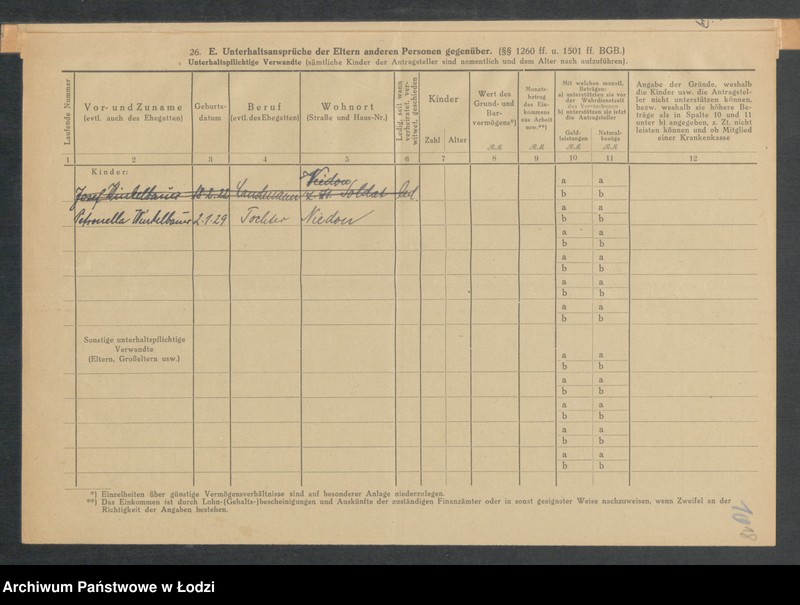 26. E. Unterhaltsansprüche der Eltern anderen Personen gegenüber. (§§ 1260 ff. u. 1501 ff. BGB.)
Unterhaltspflichtige Verwandte (sämtliche Kinder der Antragsteller sind namentlich und dem Alter nach aufzuführen).
Laufende Nummer
Vor- und Zuname
(evtl. auch des Ehegatten)
Geburts-
datum
Beruf
(evtl. des Ehegatten)
Wohnort
(Straße und Haus-Nr.)
Ledig, seit wann
verheiratet, ver-
witwet, geschieden
Kinder
Zahl Alter
Wert des
Grund- und
Bar-
vermögens*)
RM
Monats-
betrag
des Ein-
kommens
aus Arbeit
usw.**)
RM
Mit welchen monatl.
Beträgen:
a) unterstützten sie vor
der Wehrdienstzeit
des Verstorbenen
b) unterstützen sie jetzt
die Antragsteller
Geld-
leistungen
RM
Natural-
bezüge
RM
Angabe der Gründe, weshalb
die Kinder usw. die Antragstel-
ler nicht unterstützen können,
bezw. weshalb sie höhere Be-
träge als in Spalte 10 und 11
unter b) angegeben, z. Zt. nicht
leisten können und ob Mitglied
einer Krankenkasse
1 2 3 4 5 6 7 8 9 10 11 12
Kinder:
Niedou
Josef Winkelbauer Landmann z. Zt. Soldat led
a a
b b
Petronella Winkelbauer 2.1.29 Tochter Niedou
a a
b b
a a
b b
a a
b b
a a
b b
a a
b b
Sonstige unterhaltspflichtige
Verwandte
(Eltern, Großeltern usw.)
a a
b b
a a
b b
a a
b b
a a
b b
a a
b b
*) Einzelheiten über günstige Vermögensverhältnisse sind auf besonderer Anlage niederzulegen.
**) Das Einkommen ist durch Lohn-(Gehalts-)bescheinigungen und Auskünfte der zuständigen Finanzämter oder in sonst geeigneter Weise nachzuweisen, wenn Zweifel an der
Richtigkeit der Angaben bestehen.
Archiwum Państwowe w Łodzi